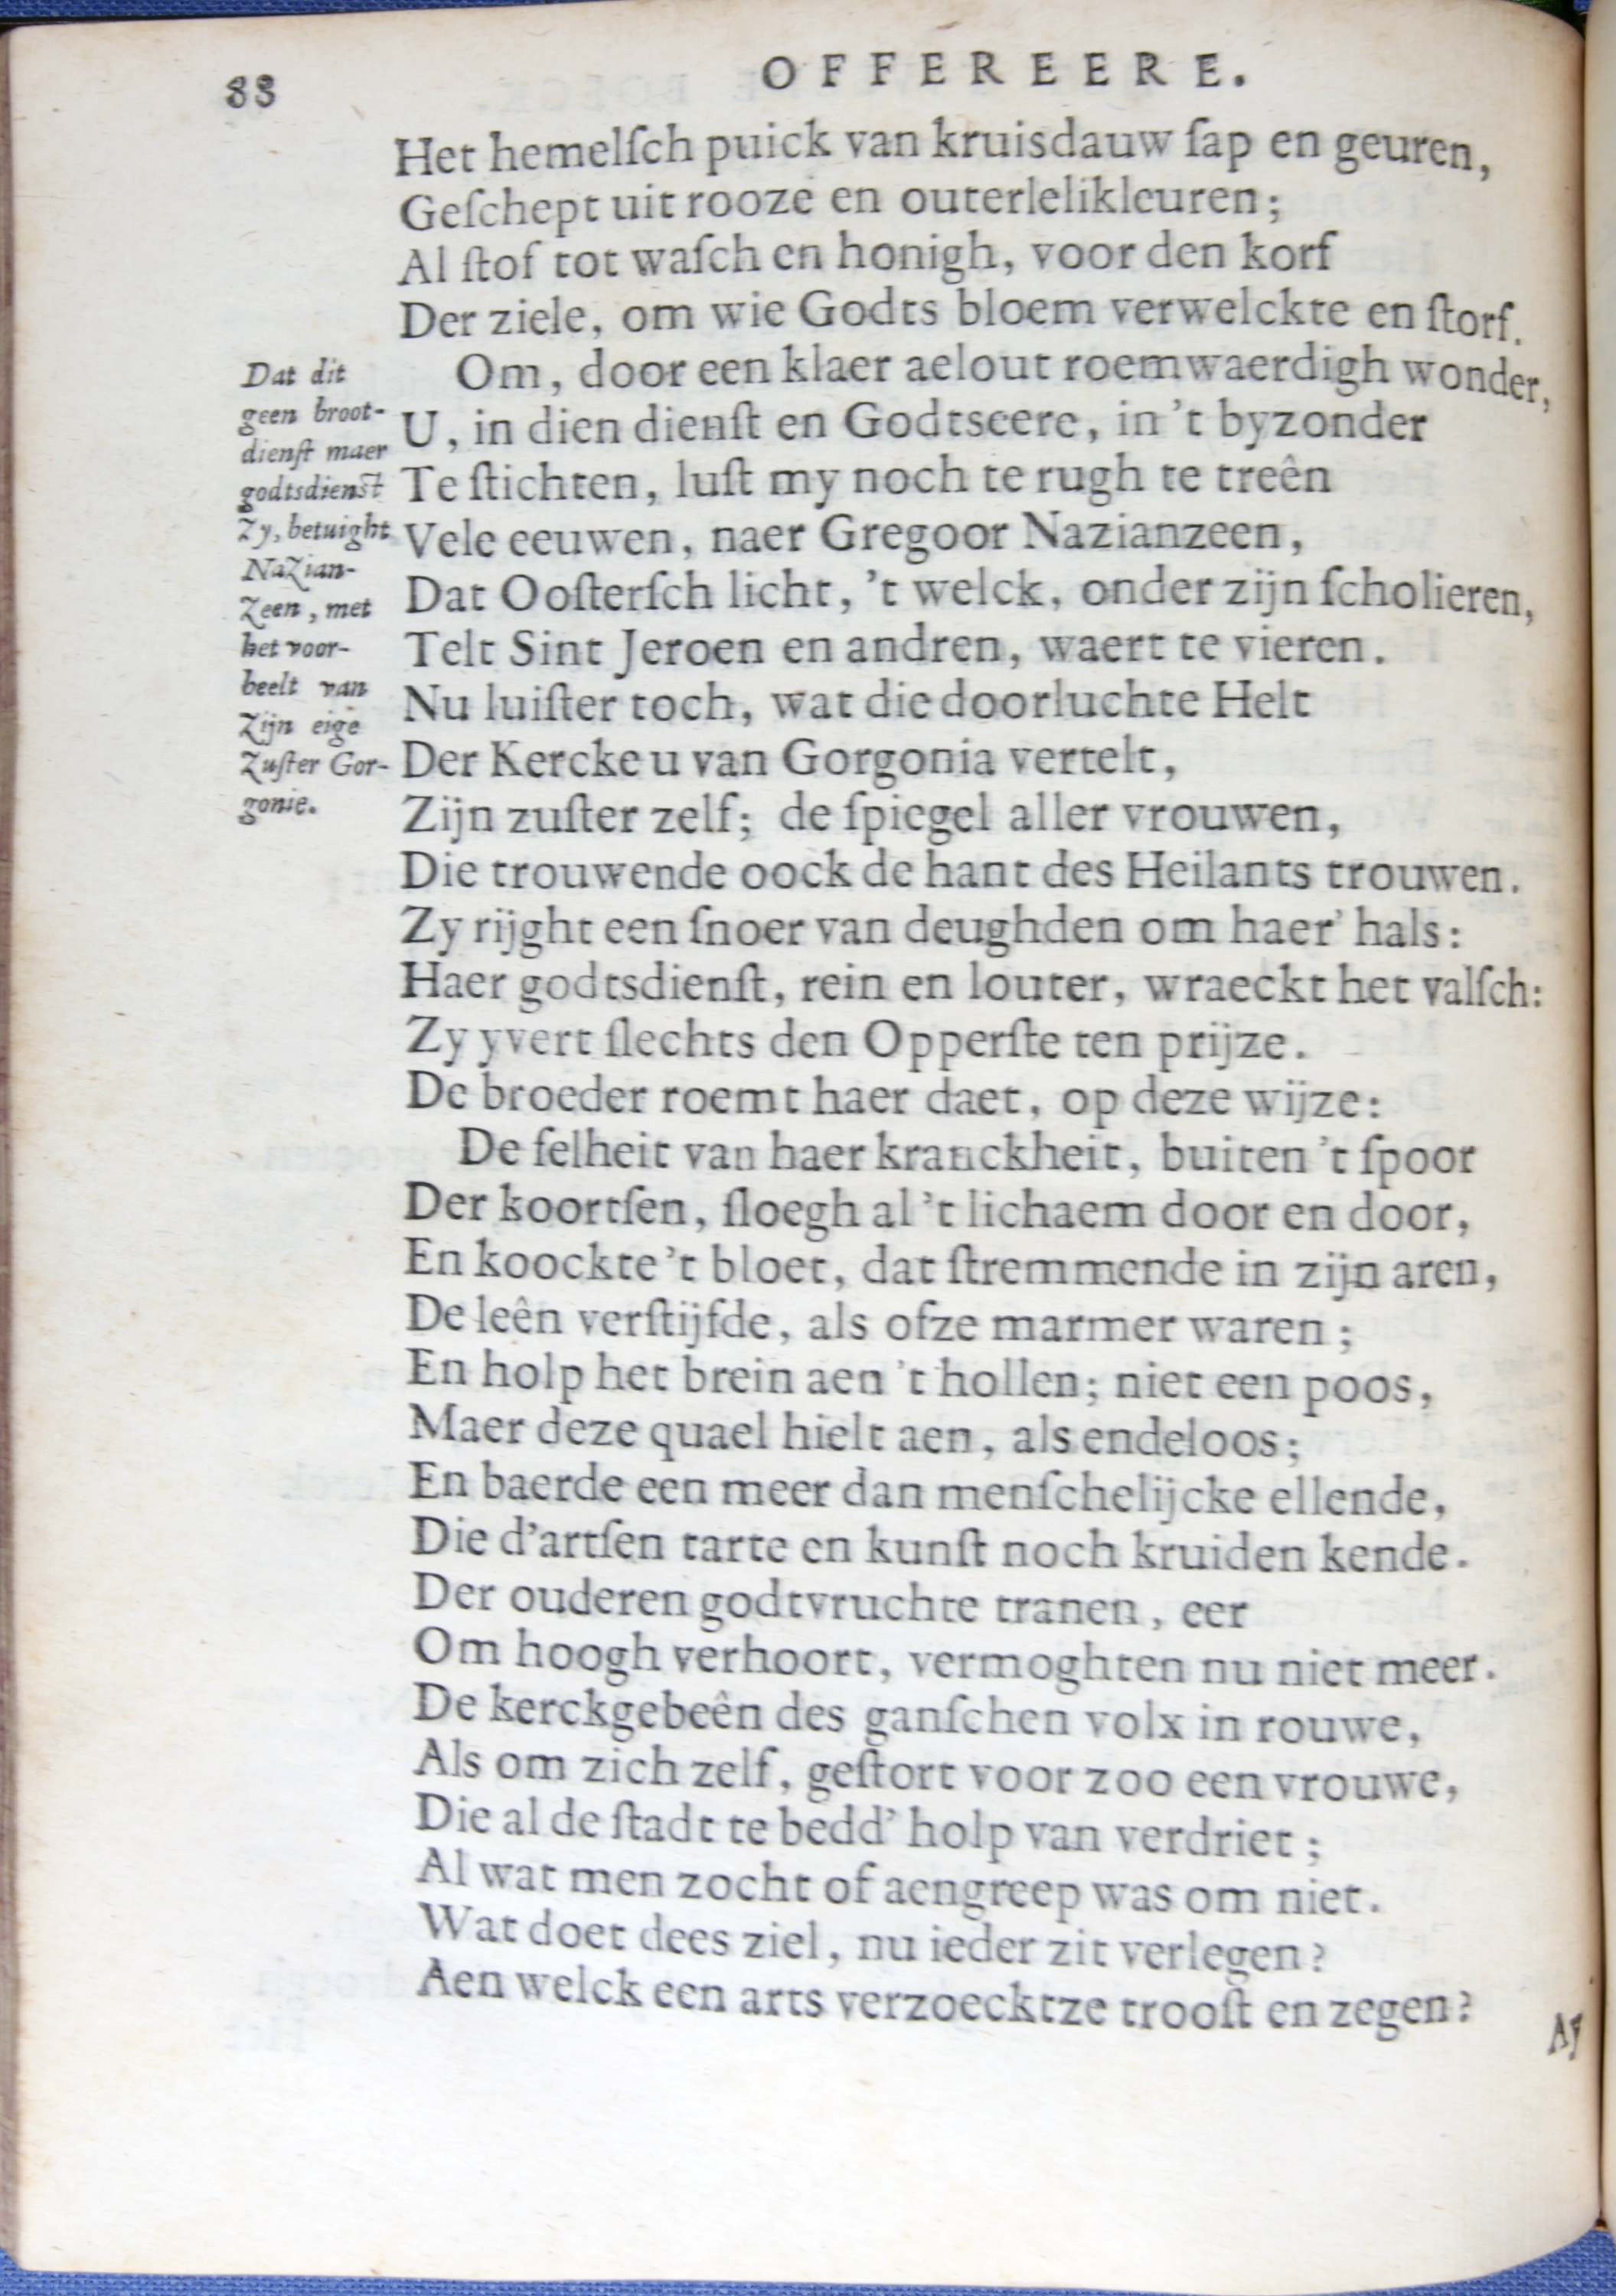 88
OFFEREERE.
Het hemelſch puick van kruisdauw ſap en geuren,
Geſchept uit rooze en outerlelikleuren;
Al ſtof tot waſch en honigh, voor den korf
Der ziele, om wie Godts bloem verwelckte en ſtorf.
Om, door een klaer aelout roemwaerdigh wonder,
U, in dien dienſt en Godtseere, in 't byzonder
Te ſtichten, luſt my noch te rugh te treên
Vele eeuwen, naer Gregoor Nazianzeen,
Dat Ooſterſch licht, 't welck, onder zijn ſcholieren,
Telt Sint Jeroen en andren, waert te vieren.
Nu luiſter toch, wat die doorluchte Helt
Der Kercke u van Gorgonia vertelt,
Zijn zuſter zelf; de ſpiegel aller vrouwen,
Die trouwende oock de hant des Heilants trouwen.
Zy rijght een ſnoer van deughden om haer' hals:
Haer godtsdienſt, rein en louter, wraeckt het valſch:
Zy yvert ſlechts den Opperſte ten prijze.
De broeder roemt haer daet, op deze wijze:
De felheit van haer kranckheit, buiten 't ſpoor
Der koortſen, ſloegh al 't lichaem door en door,
En koockte 't bloet, dat ſtremmende in zijn aren,
De leên verſtijfde, als ofze marmer waren;
En holp het brein aen 't hollen; niet een poos,
Maer deze quael hielt aen, als endeloos;
En baerde een meer dan menſchelijcke ellende,
Die d'artſen tarte en kunſt noch kruiden kende.
Der ouderen godtvruchte tranen, eer
Om hoogh verhoort, vermoghten nu niet meer.
De kerckgebeên des ganſchen volx in rouwe,
Als om zich zelf, geſtort voor zoo een vrouwe,
Die al de ſtadt te bedd' holp van verdriet;
Al wat men zocht of aengreep was om niet.
Wat doet dees ziel, nu ieder zit verlegen?
Aen welck een arts verzoecktze trooſt en zegen?
Ay
Dat dit
geen broot-
dienſt maer
godtsdienſt
Zy, betuight
Nazian-
zeen, met
het voor-
beelt van
Zijn eige
Zuſter Gor-
gonie.